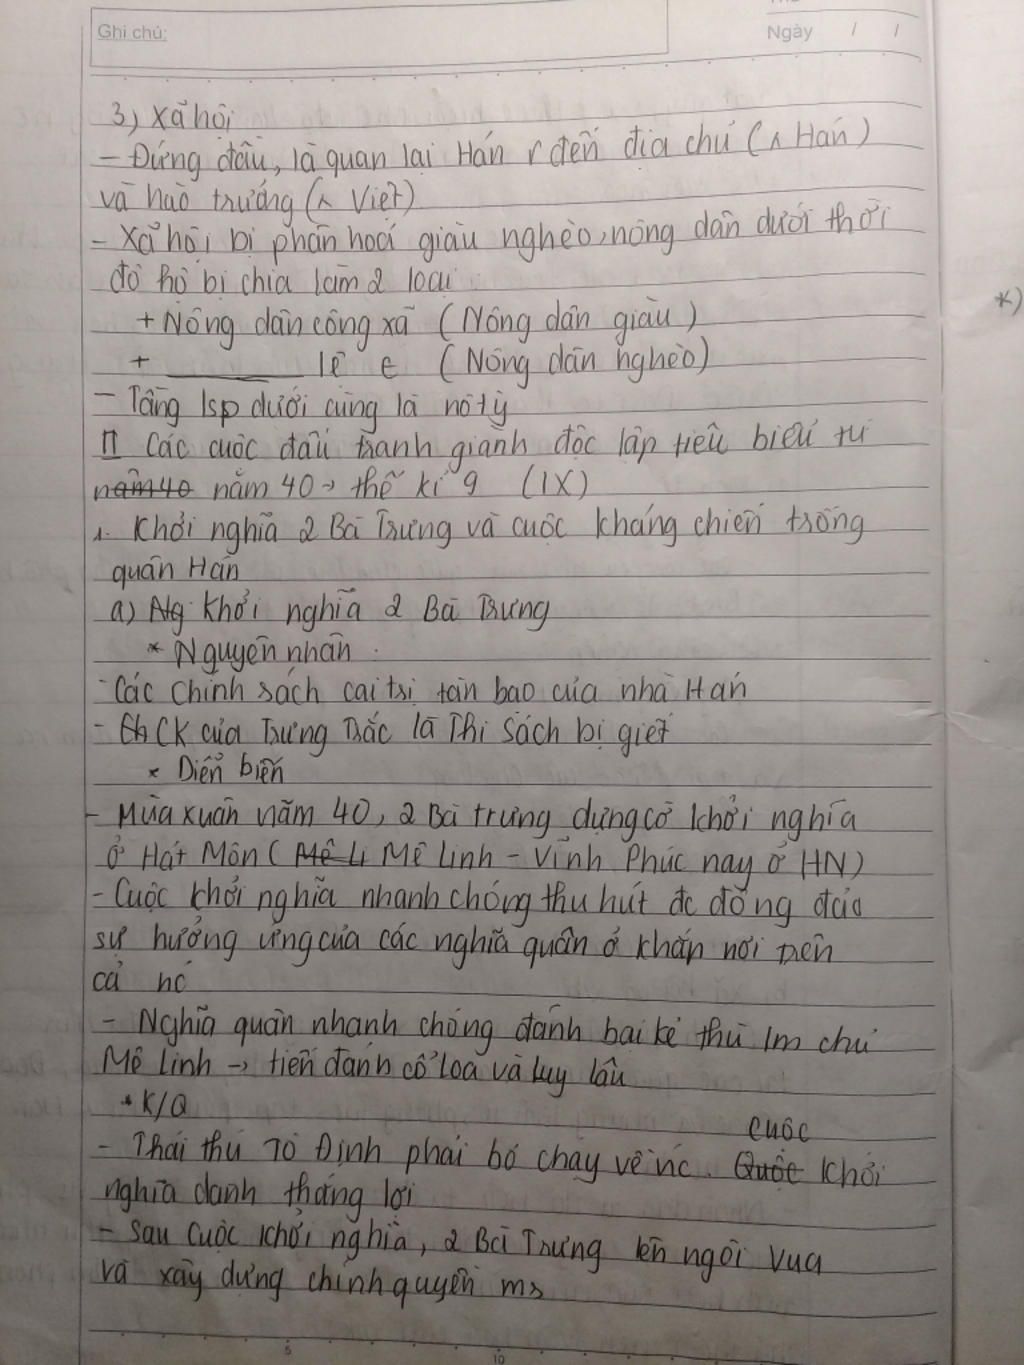 Ghi chú:
Ngày / /
3) Xã hội
- Đứng đầu, là quan lại Hán r đến địa chủ (^ Hán)
và hào trưởng (^ Việt)
- Xã hội bị phân hoá giàu nghèo, nông dân dưới thời
đô hộ bị chia làm 2 loại
+ Nông dân công xã (Nông dân giàu)
+ ______ lệ € (Nông dân nghèo)
- Tầng lsp dưới cùng là nô tỳ
II Các cuộc đấu tranh giành độc lập tiêu biểu từ
năm 40 năm 40 → thế kỉ 9 (IX)
1. Khởi nghĩa 2 Bà Trưng và cuộc kháng chiến trống
quân Hán
a) Ng Khởi nghĩa 2 Bà Trưng
* Nguyên nhân
- Các chính sách cai trị tàn bạo của nhà Hán
- Ch CK của Trưng Trắc là Thi Sách bị giết
* Diễn biến
- Mùa xuân năm 40, 2 Bà trưng dựng cờ khởi nghĩa
ở Hát Môn (Mê Li Mê Linh - Vĩnh Phúc nay ở HN)
- Cuộc khởi nghĩa nhanh chóng thu hút đc đông đảo
sự hưởng ứng của các nghĩa quân ở khắp nơi trên
cả nc
- Nghĩa quân nhanh chóng đánh bại kẻ thù lm chủ
Mê Linh → tiến đánh cổ loa và luy lâu
* K/Q
cuộc
- Thái thú Tô Định phải bỏ chạy về nc. Quộc khởi
nghĩa dành thắng lợi
- Sau cuộc khởi nghĩa, 2 Bà Trưng lên ngôi vua
và xây dựng chính quyền ms
*)
5
10